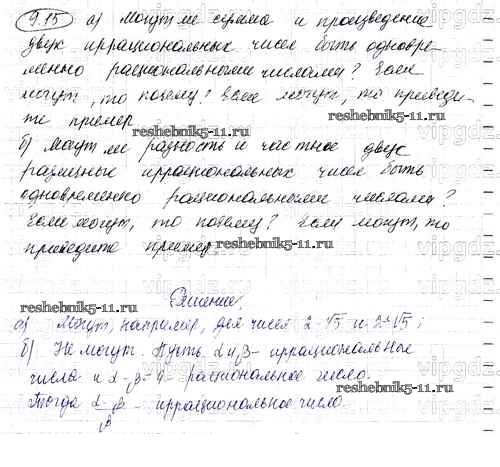 9.15 а) Могут ли сумма и произведение
двух иррациональных чисел быть одновре-
менно рациональными числами? Если
могут, то почему? Если могут, то приведи-
те пример.
reshebnik5-11.ru reshebnik5-11.ru
б) Могут ли разность и частное двух
различных иррациональных чисел быть
одновременно рациональными числами?
Если могут, то почему? Если могут, то
приведите пример.
reshebnik5-11.ru
Решение:
reshebnik5-11.ru
а) Могут, например, для чисел 2-√5 и 2+√5;
б) Не могут. Пусть α и β - иррациональные
числа и α-β= - рациональное число.
reshebnik5-11.ru
Тогда α/β - иррациональное число.
reshebnik5-11.ru